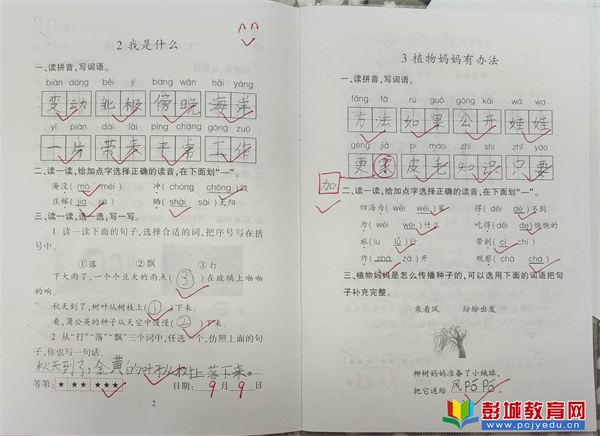 2 我是什么
一、读拼音,写词语。
biàn dòng běi jí bàng wǎn hǎi yáng
变动 北极 傍晚 海洋
yí piàn dài lái píng cháng gōng zuò
一片 带来 平常 工作
二、读一读,给加点字选择正确的读音,在下面划“—”。
淹没(mò méi) 冲(chóng chōng)毁
庄稼(jià jia) 晒(shài sài)太阳
三、读一读,选一选,写一写。
1. 读一读下面的句子,选择合适的词,把序号写在括
号中。
①落 ②飘 ③打
下大雨了,一个个豆大的雨点(③)在玻璃上啪啪
的响。
秋天到了,树叶从树枝上(①)下来。
看,蒲公英的种子从天空中慢慢(②)下来。
2. 从“打”“落”“飘”三个词中,任选一个,仿照上面的句
子,你也写一句话。
秋天到了,金黄的叶子从树上落下来。
等第: ★ ★★ ★★★ 日期: 9月9日
2
3 植物妈妈有办法
一、读拼音,写词语。
fāng fǎ rú guǒ gōng kāi wá wa
方法 如果 公开 娃娃
gèng jiā pí máo zhī shi zhǐ yào
更家 皮毛 知识 只要
加
二、读一读,给加点字选择正确的读音,在下面划“—”。
四海为(wéi wèi)家 得(děi dé)不到
为(wéi wèi)什么 吃得(děi de)饱饱的
旅(lu lǚ)行 带刺(cì chì)
炸(zhà zá)开 观察(chá chà)
三、植物妈妈是怎么传播种子的,可以选用下面的词语把句
子补充完整。
乘着风 纷纷出发
柳树妈妈准备了小绒球,
把它送给风pó pó。
彭城教育网
www.pcjyedu.cn